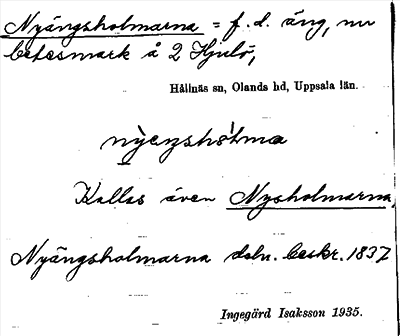 Nyängsholmarna = f. d. äng, nu
betesmark å 2 Hjulö,
Hållnäs sn, Olands hd, Uppsala län.
Kallas även Nysholmarna,
Nyängsholmarna dsbr. beskr. 1837
Ingegärd Isaksson 1935.